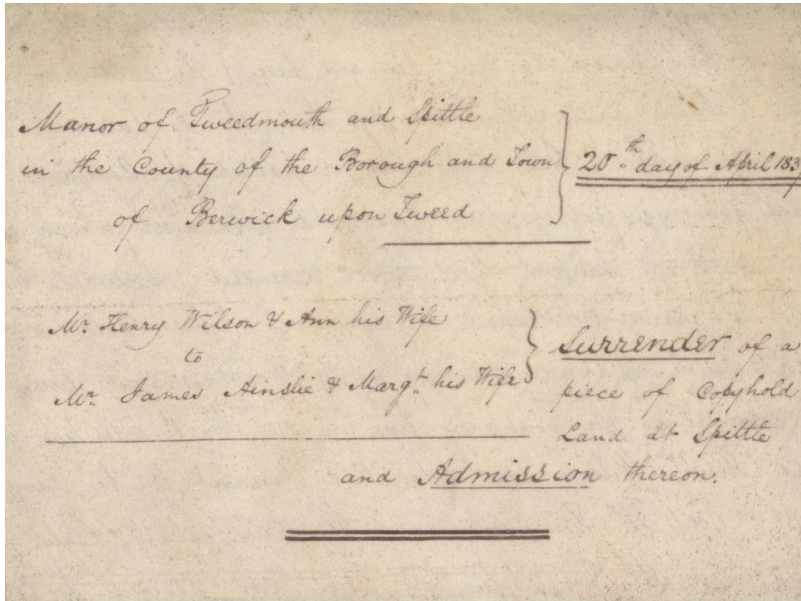 Manor of Tweedmouth and Spittle
in the County of the Borough and Town
of Berwick upon Tweed
20th day of April 183
Mr. Henry Wilson & Ann his Wife
to
Mr. James Ainslie & Margt. his Wife
Surrender of a
piece of Copyhold
Land at Spittle
and Admission thereon.